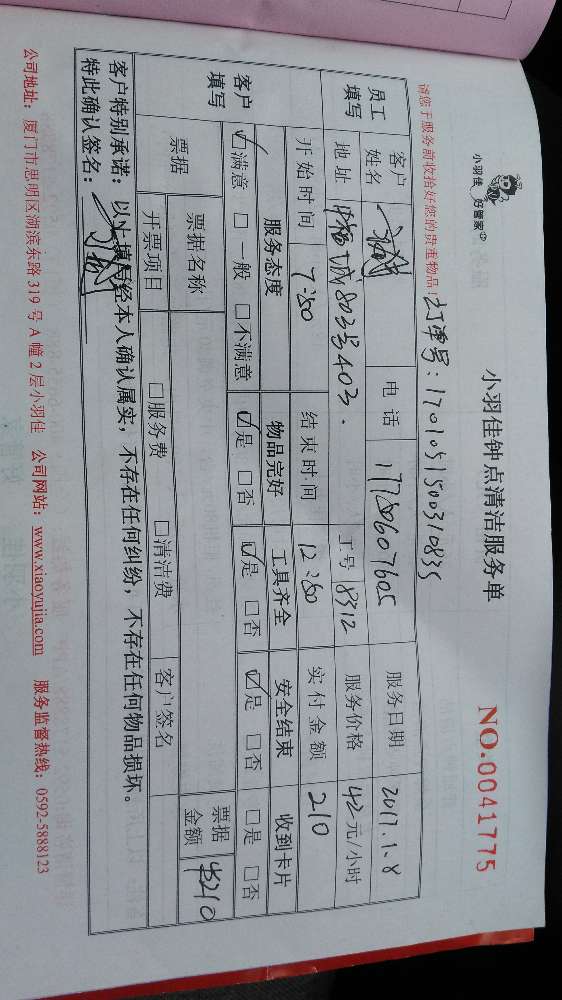 小羽佳 好管家
小羽佳钟点清洁服务单
NO.0041775
请您于服务前收拾好您的贵重物品!
订单号:170105150031083S
员工填写
客户姓名 电话 17750607605 服务日期 2017.1.8
地址 中福城803号403. 工号 8312 服务价格 42元/小时
开始时间 7:50 结束时间 12:50 实付金额 210
客户填写
服务态度 物品完好 工具齐全 安全结束 收到卡片
☑满意 □一般 □不满意 ☑是 □否 ☑是 □否 ☑是 □否 □是 □否
票据
票据名称 票据金额 ¥210
开票项目 □服务费 □清洁费 客户签名
客户特别承诺:以上填写经本人确认属实,不存在任何纠纷,不存在任何物品损坏。
特此确认签名:
公司地址:厦门市思明区湖滨东路319号A幢2层小羽佳 公司网站:www.xiaoyujia.com 服务监督热线:0592-5888123